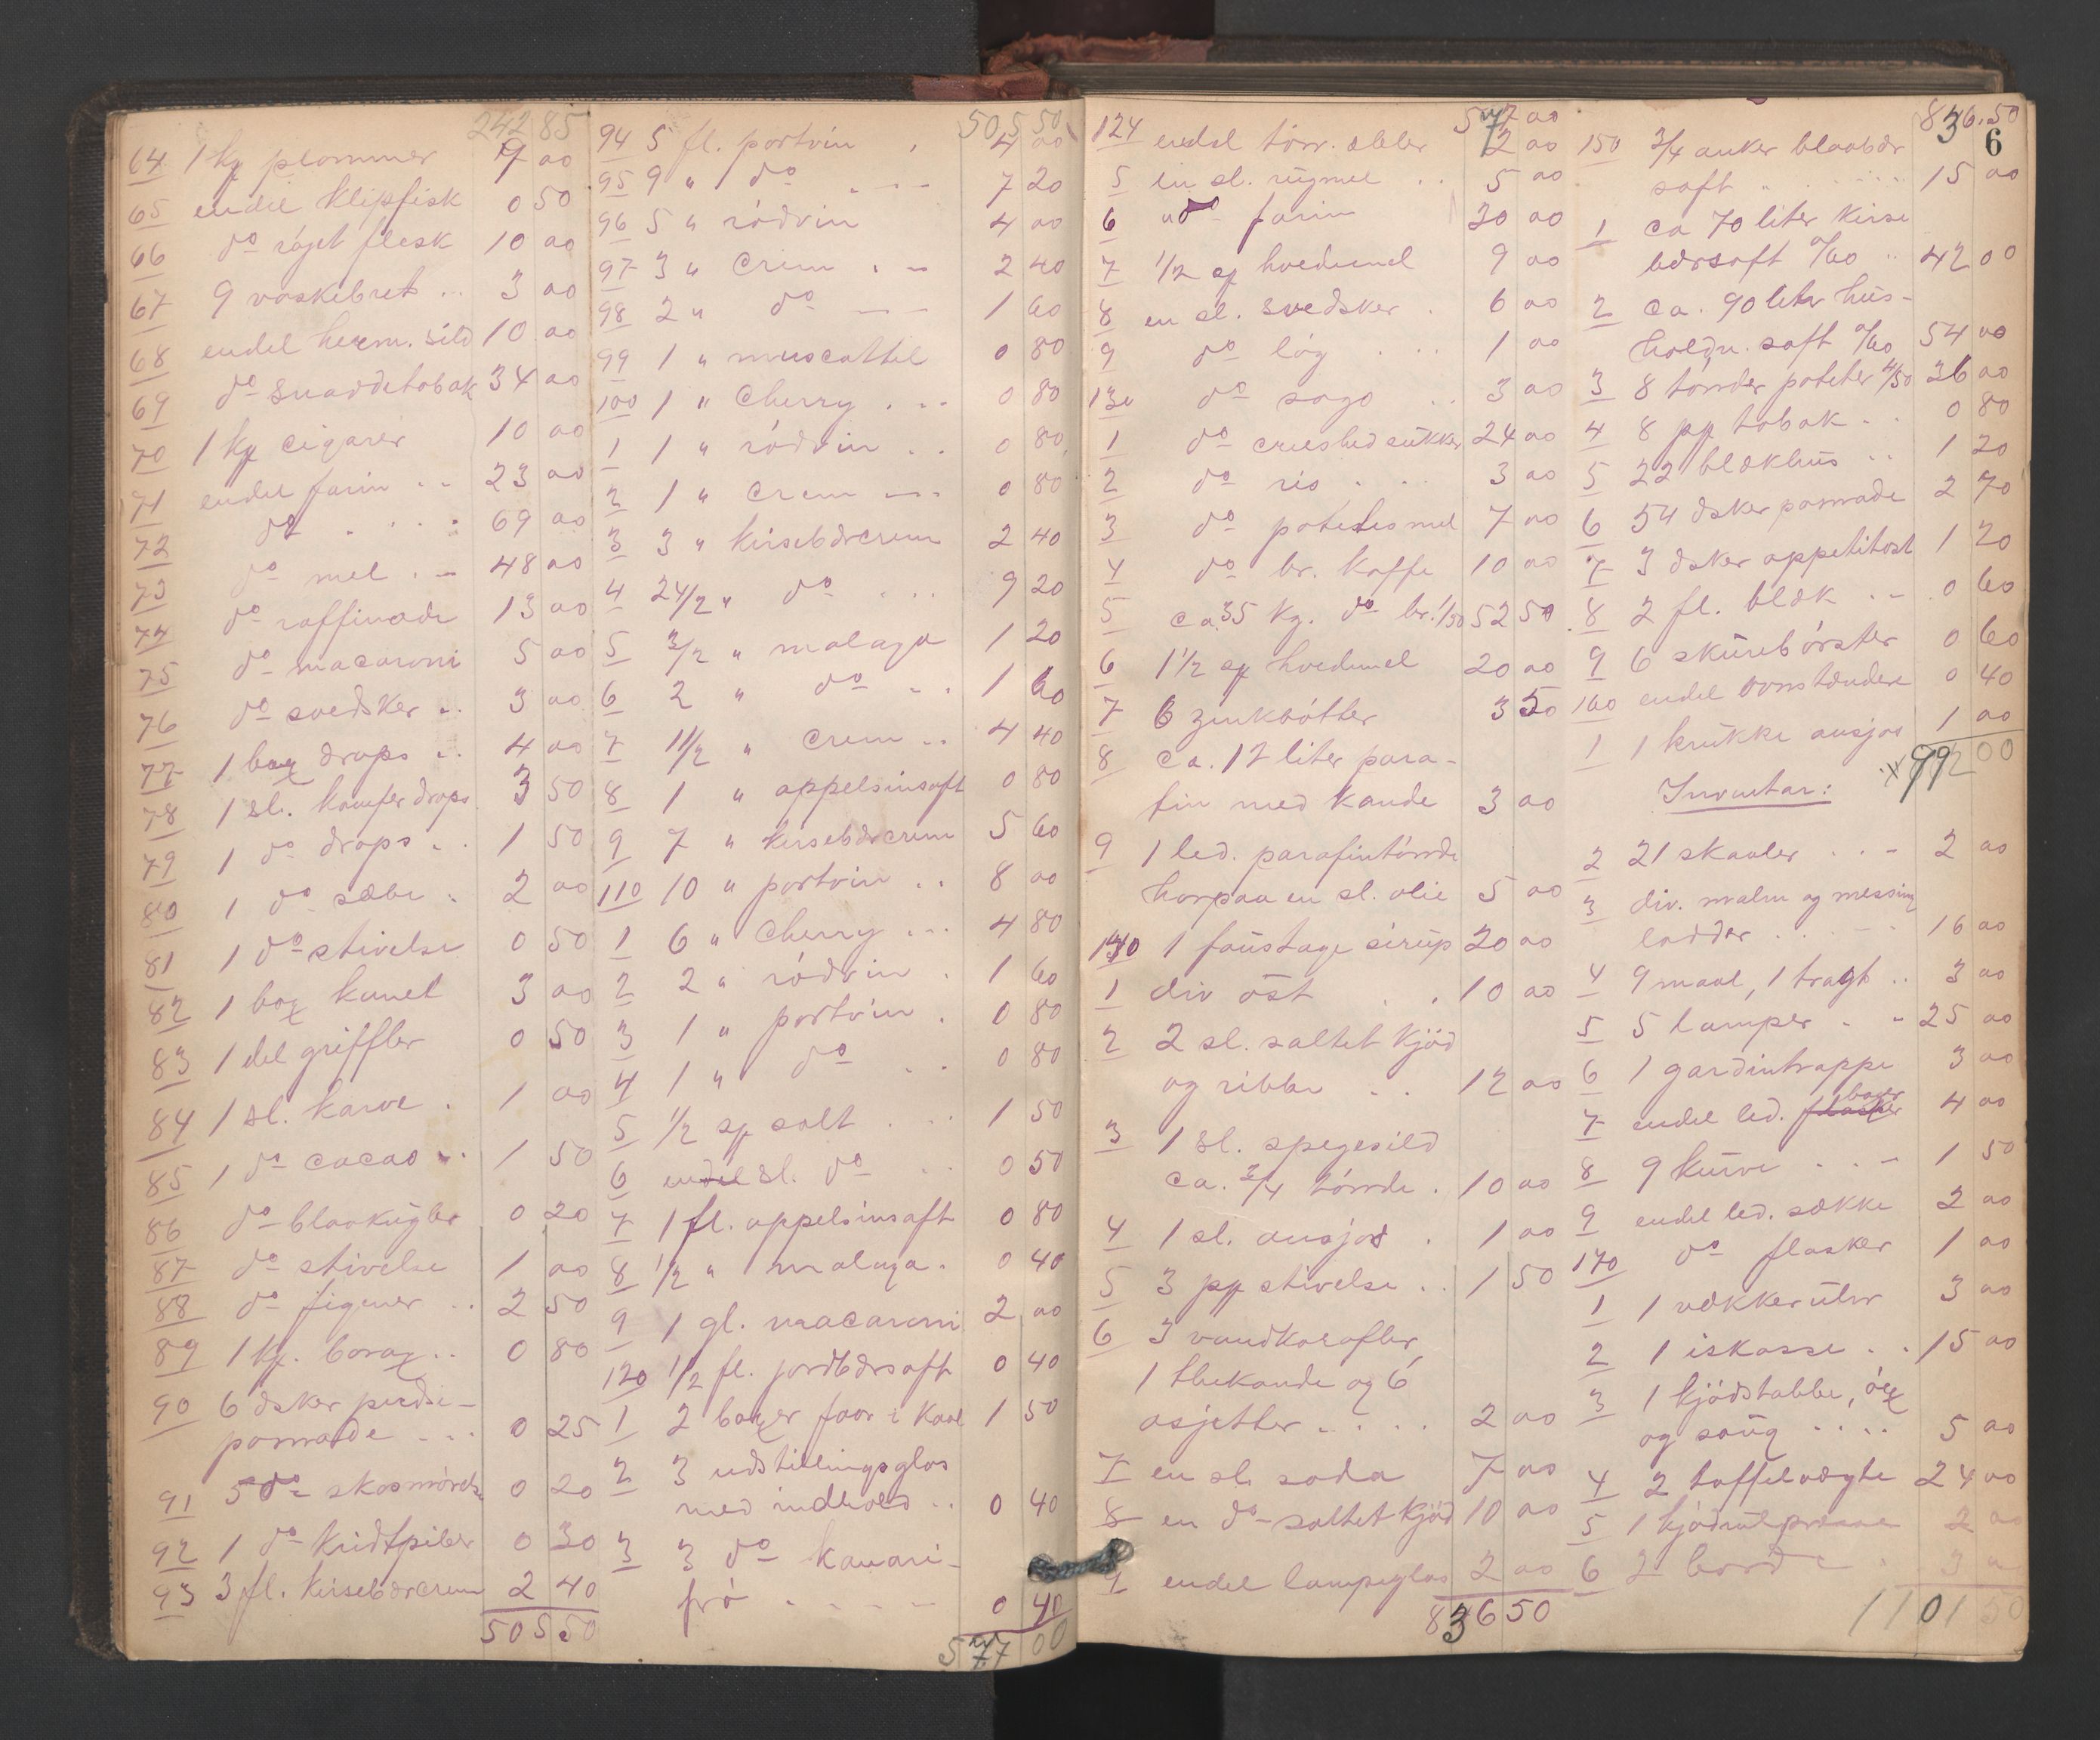 242 85
64 1 kg plommer 9 00
65 endel klipfisk 0 50
66 do röget flesk 10 00
67 9 vaskebret .. 3 00
68 endel herm. sild 10 00
69 do snaddetobak 34 00
70 1 kg cigarer 10 00
71 endel farin .. 23 00
72 do . . . . 69 00
73 do mel . - 48 00
74 do raffinade 13 00
75 do macaroni 5 00
76 do svedsker .. 3 00
77 1 box drops .. 4 00
78 1 sl. kamferdrops 3 50
79 1 do drops . . 1 50
80 1 do sæbe . 2 00
81 1 do stivelse 0 50
82 1 box kanel 3 00
83 1 del griffler 0 50
84 1 sl. karve . 1 00
85 1 do cacao .. 1 50
86 do blaakugler 0 20
87 do stivelse 1 00
88 do figener .. 2 50
89 1 kg. borax .. 0 80
90 6 dsker pudse-
pomade - .. 0 25
91 5 do skosmörelse 0 20
92 1 do kridtpiber 0 30
93 3 fl. kirsebærcrem 2 40
505 50
505 50
94 5 fl. portvin . 4 00
95 9 " do . - - - 7 20
96 5 " rödvin 4 00
97 3 " Crem . - 2 40
98 2 " do - - 1 60
99 1 " muscattel 0 80
100 1 " Cherry . .. 0 80
1 1 " rödvin . . 0 80
2 1 " Crem - .. 0 80
3 3 " kirsebærcrem 2 40
4 24/2 " do . .. 9 20
5 3/2 " malaga 1 20
6 2 " do . . 1 60
7 11/2 " Crem .. 4 40
8 1 " appelsinsaft 0 80
9 7 " kirsebærcrem 5 60
110 10 " portvin .. 8 00
1 6 " Cherry ... 4 80
2 2 " rödvin . 1 60
3 1 " portvin . 0 80
4 1 " do . . 0 80
5 1/2 sp salt . . . 1 50
6 endel sl. do . . 0 50
7 1 fl. appelsinsaft 0 80
8 1/2 " malaga . 0 40
9 1 gl. macaroni 2 00
120 1/2 fl. jordbærsaft 0 40
1 2 boxer faar i kaal 1 50
2 3 udstillingsglas
med indhold .. 0 40
3 3 do kanari-
frö - - - - - 0 40
577 00
577 00
124 endel törr. æbler 2 00
5 en sl. rugmel .. 5 00
6 " do farin 30 00
7 1/2 sp hvedemel 9 00
8 en sl. svedsker . 6 00
9 do lög . .. 1 00
130 do sago .. 3 00
1 do crushed sukker 24 00
2 do ris . . . 3 00
3 do potetesmel 7 00
4 do br. kaffe 10 00
5 ca. 35 kg. do br. 1/50 52 50
6 1 1/2 sp hvedemel 20 00
7 6 zinkbötter 3 50
8 ca. 12 liter para-
fin med kande 3 00
9 1 led. parafintönde
hvorpaa en sl. olie 5 00
140 1 faustage sirup 20 00
1 div ost . . 10 00
2 2 sl. saltet kjöd
og ribbe . . 12 00
3 1 sl. spegesild
ca. 3/4 tönde . 10 00
4 1 sl. ansjos . 1 00
5 3 pp stivelse . . 1 50
6 3 vandkarafler,
1 thekande og 6
asjetter . . . . 2 00
7 en sl. soda 7 00
8 en do saltet kjöd 10 00
9 endel lampeglas 2 00
836 50
836.50
6
150 3/4 anker blaabær
saft " . . . . 15 00
1 ca 70 liter kirse
bærsaft a/60 .. 42 00
2 ca. 90 liter hus-
holdn. saft a/60 54 00
3 8 tönder poteter 4/50 36 00
4 8 pp tobak . . 0 80
5 22 blækhus .. 1 20
6 54 dsker pomade 2 70
7 3 dsker appetitost 1 20
8 2 fl. blæk . - 0 60
9 6 skurebörster 0 60
160 endel ovnstændere 0 40
1 1 krukke ansjos 1 00
992 00
Inventar:
2 21 skaaler . . - 2 00
3 div. malm og messing
lodder . . . - - 16 00
4 9 maal, 1 tragt .. 3 00
5 5 lamper . . 25 00
6 1 gardintrappe 3 00
boxer
7 endel led. flasker 4 00
8 9 kurve . . - 1 50
9 endel led. sække 2 00
170 do flasker 1 00
1 1 vækkerulvr 3 00
2 1 iskasse . . 15 00
3 1 kjödstabbe, öx
og saug . . . . 5 00
4 2 taffelvægte 24 00
5 1 kjödrulpresse 2 00
6 2 borde . 3 00
1101 50